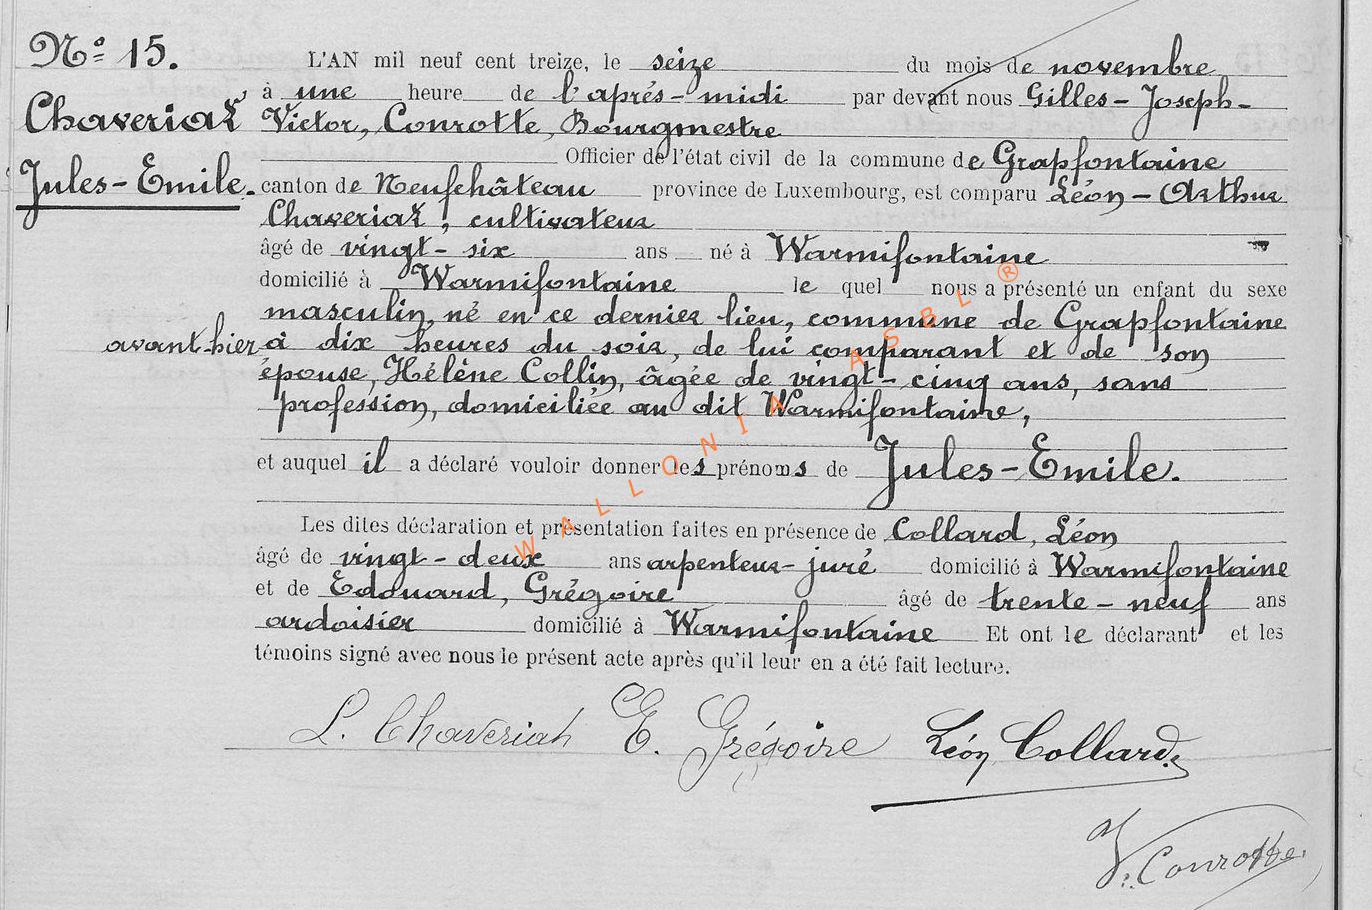 Nº 15.
Chaveriat
Jules-Emile.
L'AN mil neuf cent treize, le seize du mois de novembre
à une heure de l'après-midi par devant nous Gilles-Joseph-
Victor, Conrotte, Bourgmestre
Officier de l'état civil de la commune de Grapfontaine
canton de Neufchâteau province de Luxembourg, est comparu Léon-Arthur
Chaveriat, cultivateur
âgé de vingt-six ans né à Warmifontaine
domicilié à Warmifontaine le quel nous a présenté un enfant du sexe
masculin, né en ce dernier lieu, commune de Grapfontaine
avant-hier à dix heures du soir, de lui comparant et de son
épouse, Hélène Collin, âgée de vingt-cinq ans, sans
profession, domiciliée au dit Warmifontaine,
et auquel il a déclaré vouloir donner les prénoms de Jules-Emile.
Les dites déclaration et présentation faites en présence de Collard, Léon
âgé de vingt-deux ans arpenteur-juré domicilié à Warmifontaine
et de Edouard, Grégoire âgé de trente-neuf ans
ardoisier domicilié à Warmifontaine Et ont le déclarant et les
témoins signé avec nous le présent acte après qu'il leur en a été fait lecture.
L. Chaveriat E. Grégoire Léon Collard
V. Conrotte
WALLONIA ASBL ®